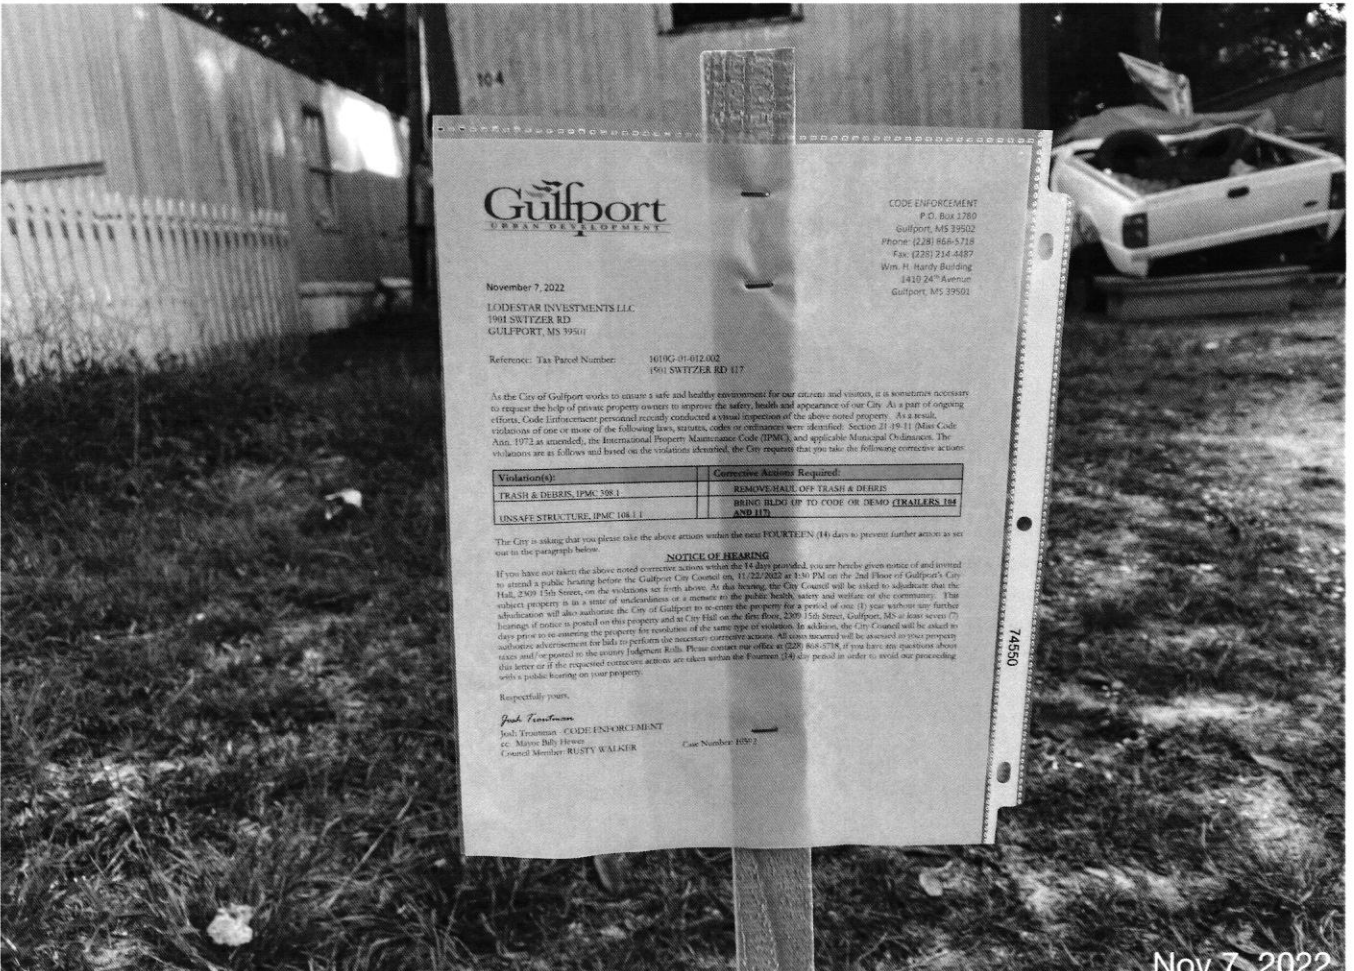 104
Gulfport
URBAN DEVELOPMENT
CODE ENFORCEMENT
P.O. Box 1780
Gulfport, MS 39502
Phone: (228) 868-5718
Fax: (228) 214-4487
Wm. H. Hardy Building
1410 24th Avenue
Gulfport, MS 39501
November 7, 2022
LODESTAR INVESTMENTS LLC
1901 SWITZER RD
GULFPORT, MS 39501
Reference: Tax Parcel Number: 1010G-01-012.002
1901 SWITZER RD 117
As the City of Gulfport works to ensure a safe and healthy environment for our citizens and visitors, it is sometimes necessary
to request the help of private property owners to improve the safety, health and appearance of our City. As a part of ongoing
efforts, Code Enforcement personnel recently conducted a visual inspection of the above noted property. As a result,
violations of one or more of the following laws, statutes, codes or ordinances were identified: Section 21-19-11 (Miss Code
Ann. 1972 as amended), the International Property Maintenance Code (IPMC), and applicable Municipal Ordinances. The
violations are as follows and based on the violations identified, the City requests that you take the following corrective actions
Violation(s): Corrective Actions Required:
TRASH & DEBRIS, IPMC 308.1 REMOVE/HAUL OFF TRASH & DEBRIS
UNSAFE STRUCTURE, IPMC 108.1.1 BRING BLDG UP TO CODE OR DEMO (TRAILERS 104
AND 117)
The City is asking that you please take the above actions within the next FOURTEEN (14) days to prevent further action as set
out in the paragraph below.
NOTICE OF HEARING
If you have not taken the above noted corrective actions within the 14 days provided, you are hereby given notice of and invited
to attend a public hearing before the Gulfport City Council on, 11/22/2022 at 1:30 PM on the 2nd Floor of Gulfport's City
Hall, 2309 15th Street, on the violations set forth above. At this hearing, the City Council will be asked to adjudicate that the
subject property is in a state of uncleanliness or a menace to the public health, safety and welfare of the community. This
adjudication will also authorize the City of Gulfport to re-enter the property for a period of one (1) year without any further
hearings if notice is posted on this property and at City Hall on the first floor, 2309 15th Street, Gulfport, MS at least seven (7)
days prior to re-entering the property for resolution of the same type of violation. In addition, the City Council will be asked to
authorize advertisement for bids to perform the necessary corrective actions. All costs incurred will be assessed to your property
taxes and/or posted to the county Judgment Rolls. Please contact our office at (228) 868-5718, if you have any questions about
this letter or if the requested corrective actions are taken within the Fourteen (14) day period in order to avoid our proceeding
with a public hearing on your property.
Respectfully yours,
Josh Troutman
Josh Troutman - CODE ENFORCEMENT
cc: Mayor Billy Hewes
Council Member: RUSTY WALKER
Case Number:
74550
Nov 7, 2022